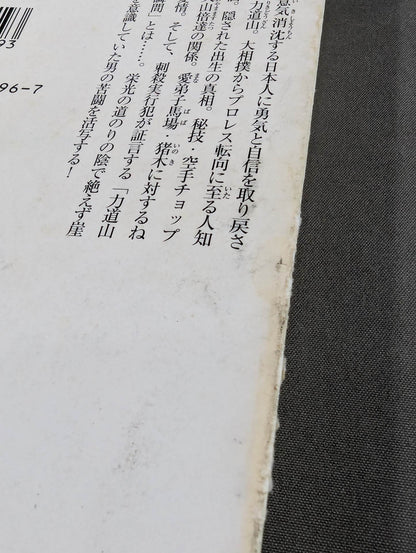 意気消沈する日本人に勇気と自信を取り戻さ
力道山。大相撲からプロレス転向に至る人知
隠された出生の真相。秘技・空手チョップ
山倍達の関係。愛弟子馬場・猪木に対するね
情。そして、刺殺実行犯が証言する「力道山
瞬間」とは……。栄光の道のりの陰で絶えず崖
を意識していた男の苦闘を活写する！
93
96-7